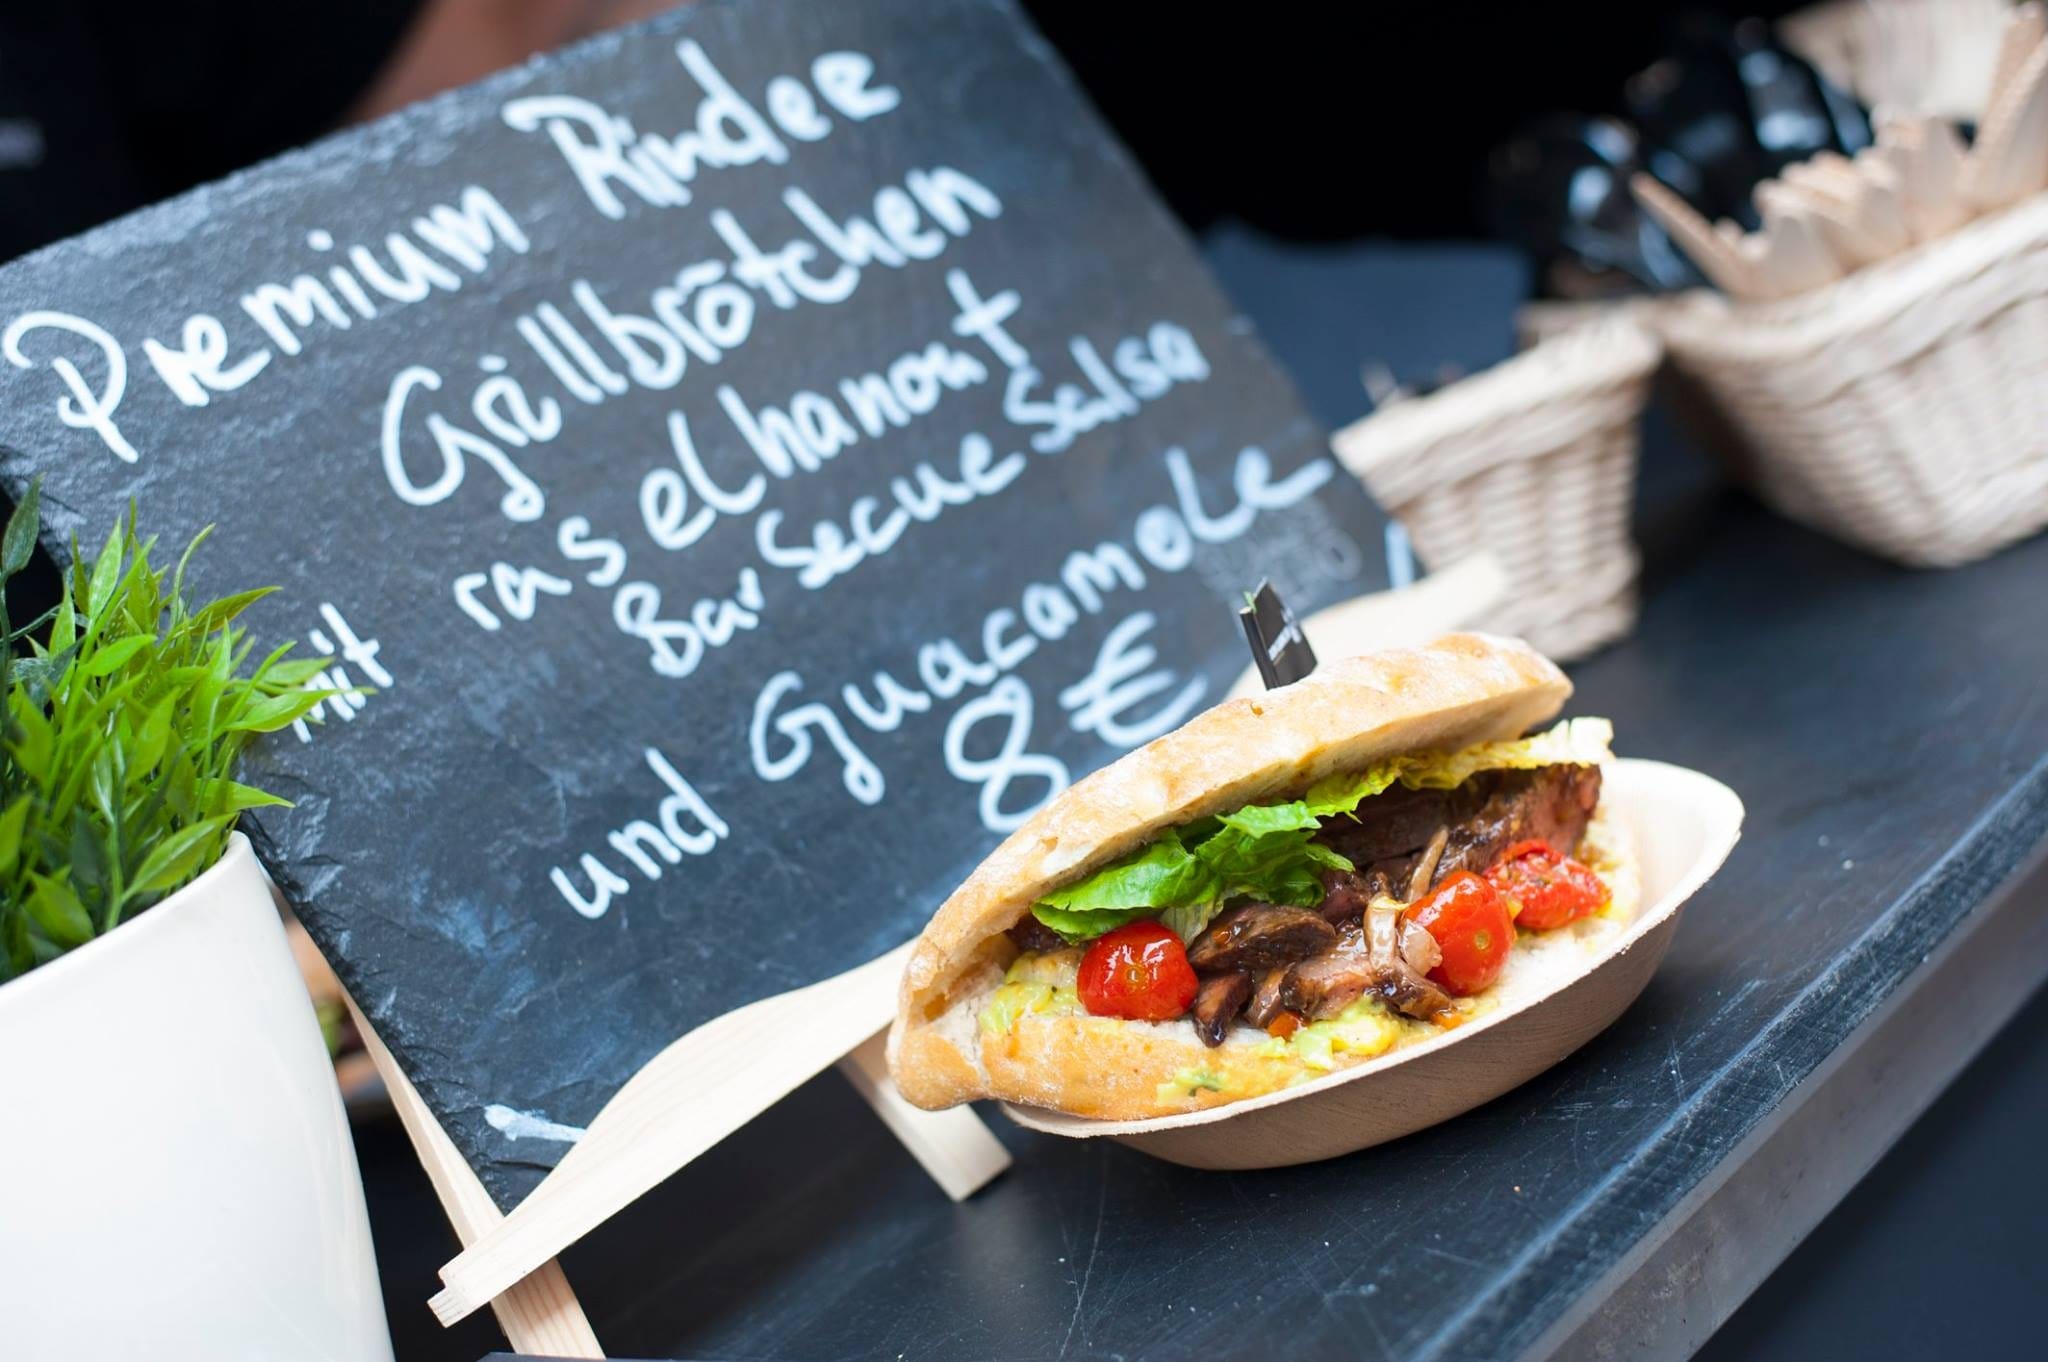 Premium Rinder
Grillbrötchen
mit ras el hanout
Barbecue Salsa
und Guacamole
8 €